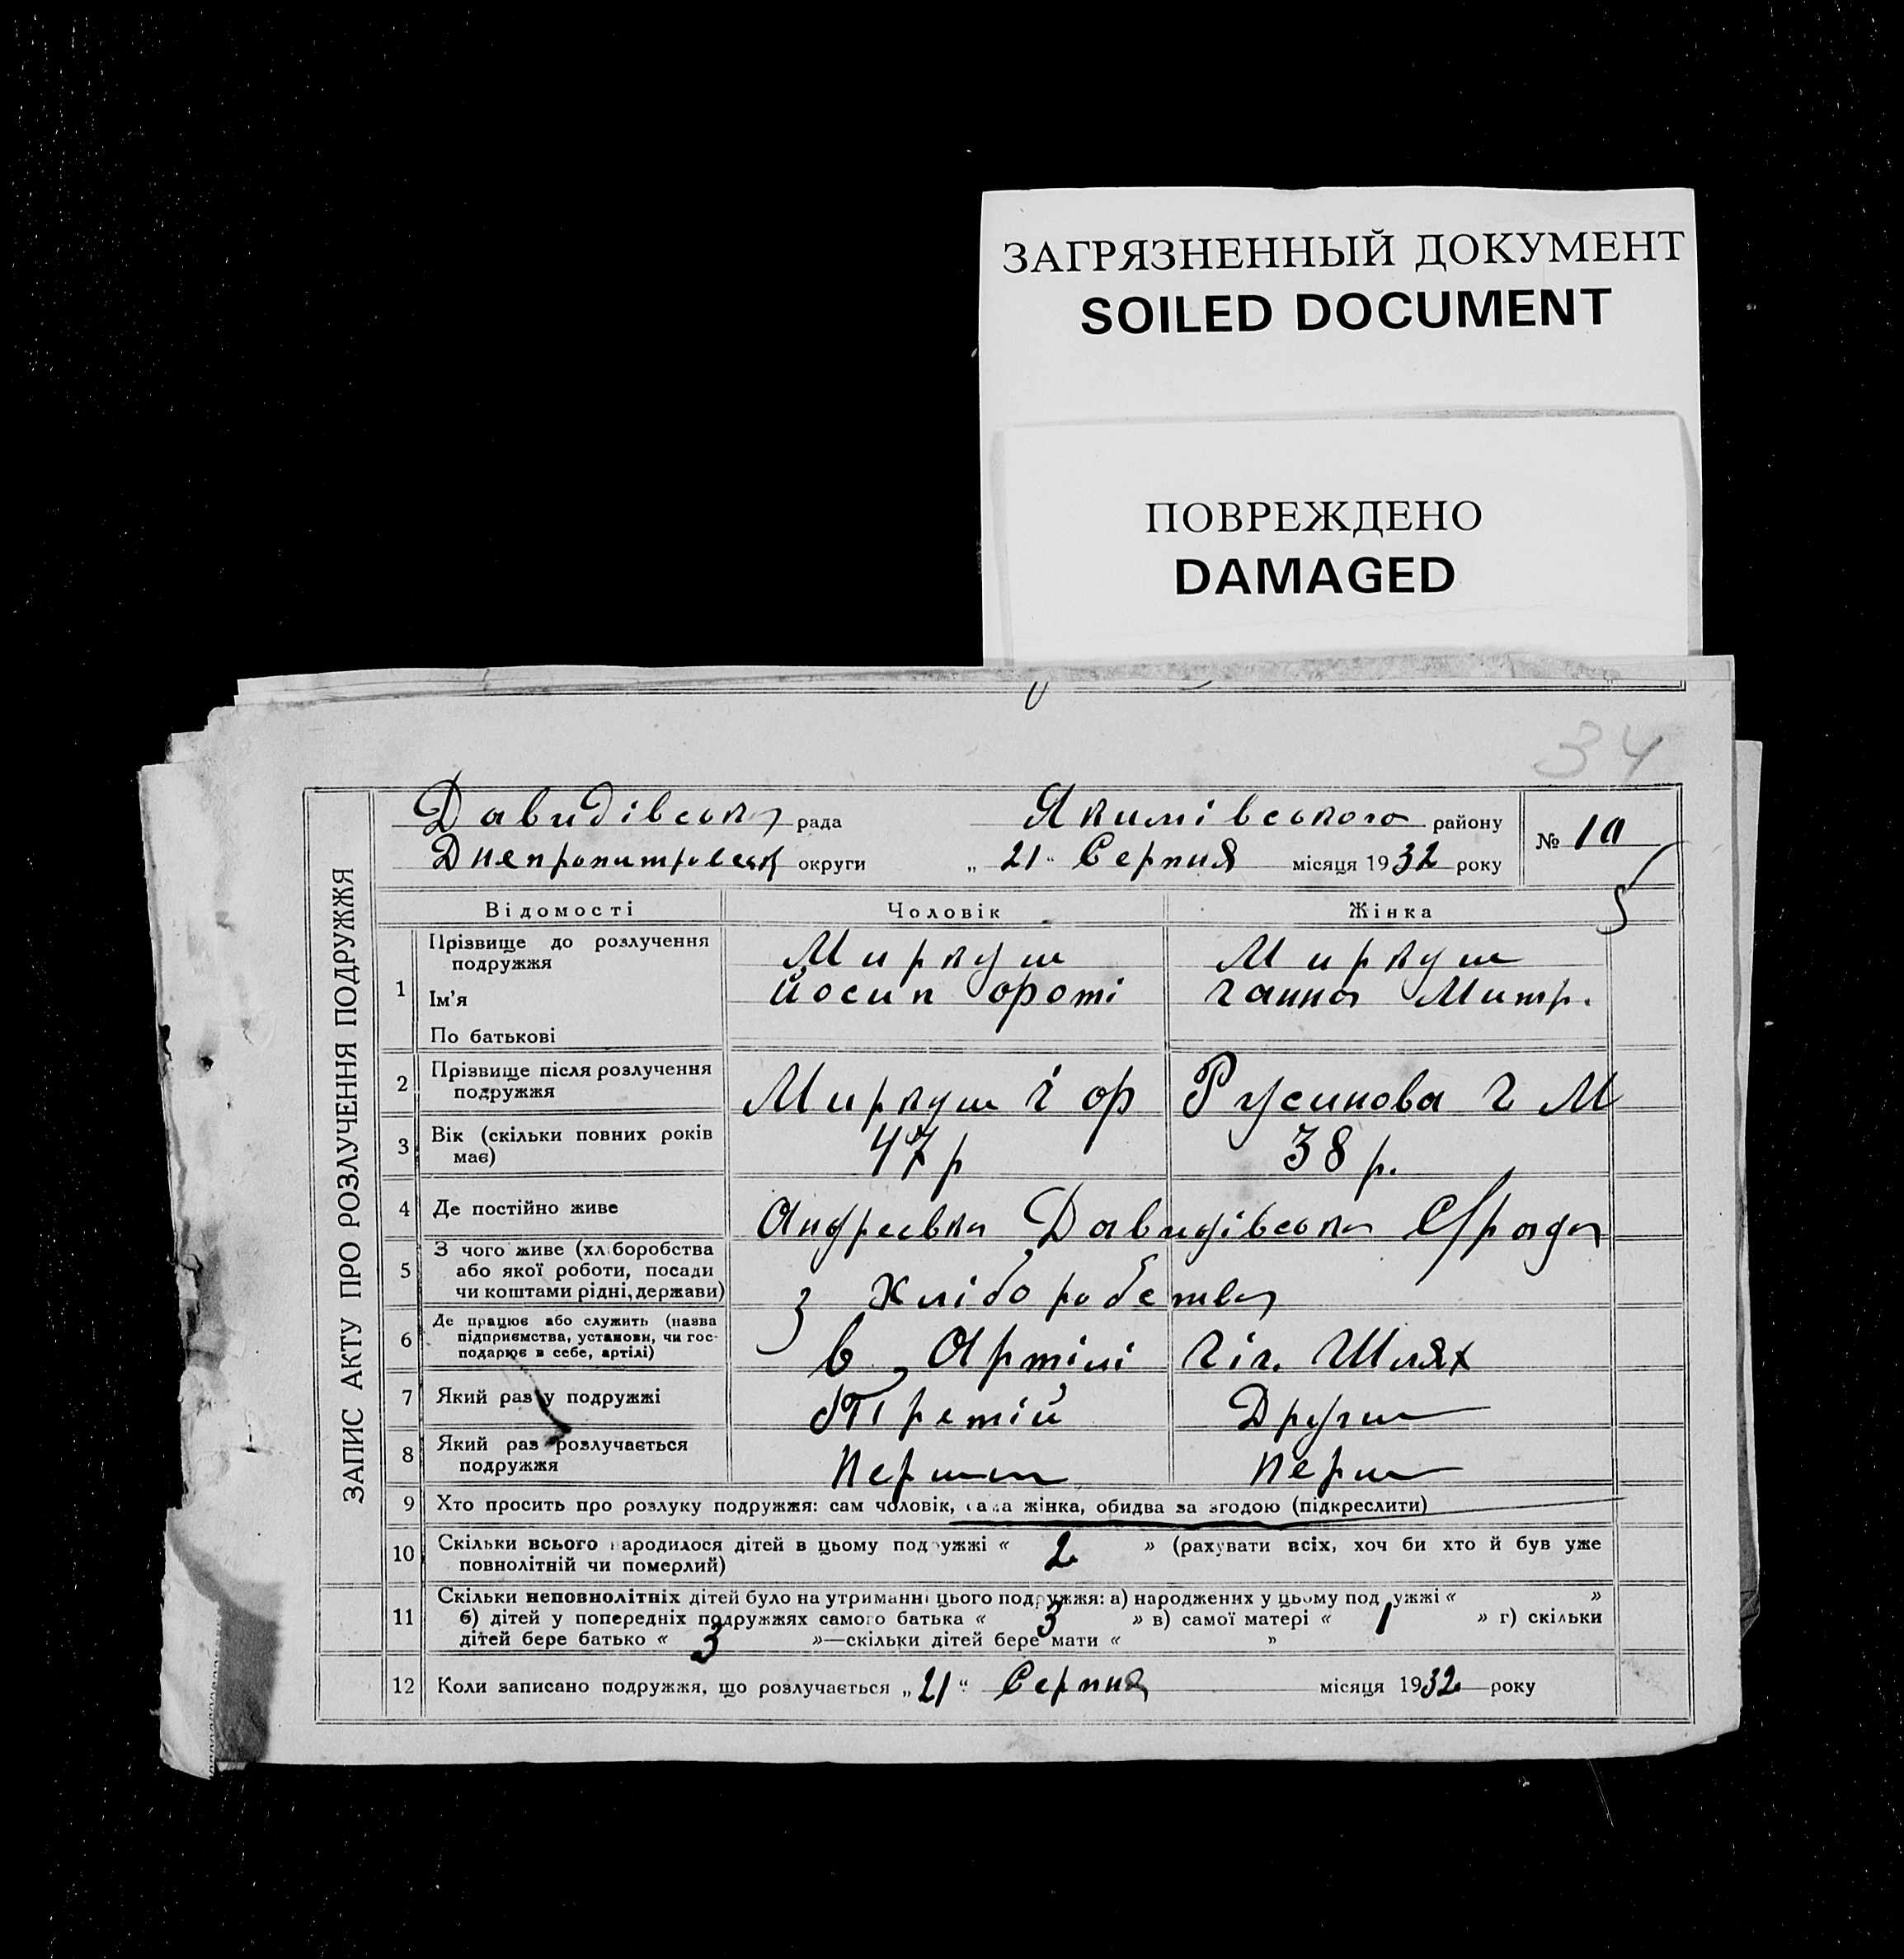 ЗАГРЯЗНЕННЫЙ ДОКУМЕНТ
SOILED DOCUMENT
ПОВРЕЖДЕНО
DAMAGED
34
ЗАПИС АКТУ ПРО РОЗЛУЧЕННЯ ПОДРУЖЖЯ
Давидівська рада Якимівського району
№ 10
округи „ 21 “ Серпня місяця 1932 року
Відомості Чоловік Жінка
1 Прізвище до розлучення подружжя Миркуш Миркуш
Ім’я Йосип Фоті Ганна Митр.
По батькові
2 Прізвище після розлучення подружжя Миркуш Й Ф Русинова Г М
3 Вік (скільки повних років має) 47 р 38 р.
4 Де постійно живе Андреевка Давидівська С/рада
5 З чого живе (хліборобства або якої роботи, посади чи коштами рідні, держави) з Хлібо робства
6 Де працює або служить (назва підприємства, установи, чи господарює в себе, артілі) в Артілі Шлях
7 Який раз у подружжі Третій Други
8 Який раз розлучається подружжя Перший Перш
9 Хто просить про розлуку подружжя: сам чоловік, сама жінка, обидва за згодою (підкреслити)
10 Скільки всього народилося дітей в цьому подружжі « 2 » (рахувати всіх, хоч би хто й був уже
повнолітній чи померлий)
11 Скільки неповнолітніх дітей було на утриманні цього подружжя: а) народжених у цьому подружжі « »
б) дітей у попередніх подружжях самого батька « 3 » в) самої матері « 1 » г) скільки
дітей бере батько « 3 »—скільки дітей бере мати « »
12 Коли записано подружжя, що розлучається „ 21 “ Серпня місяця 1932 року